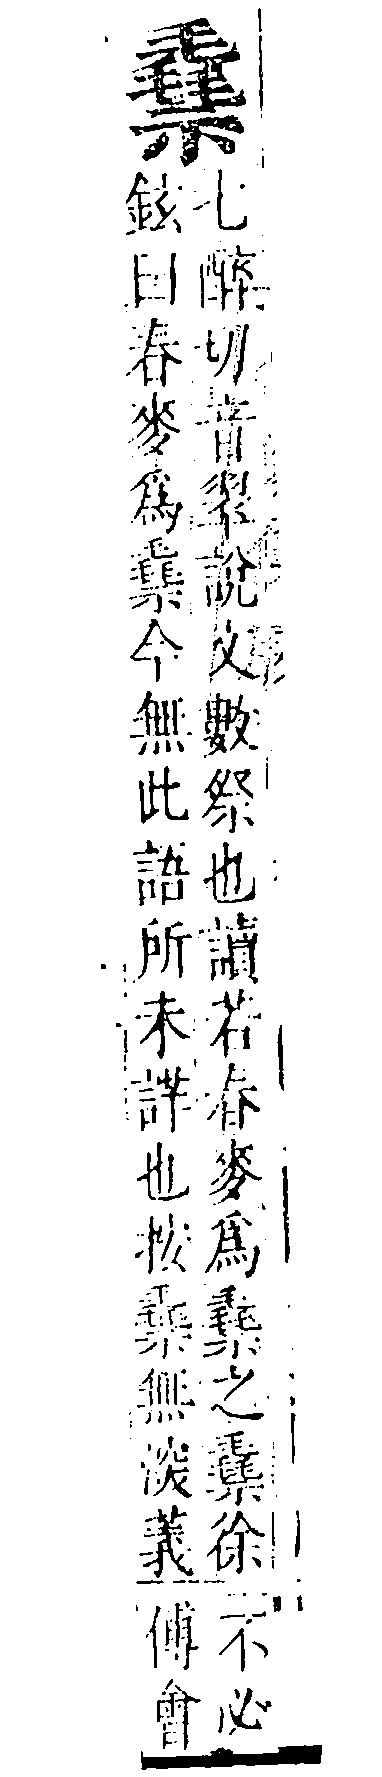 𥜻
七醉切音翠說文數祭也讀若舂麥爲𥜻之𥜻徐
鉉曰舂麥爲𥜻今無此語所未詳也按𥜻無深義
不必
傅會